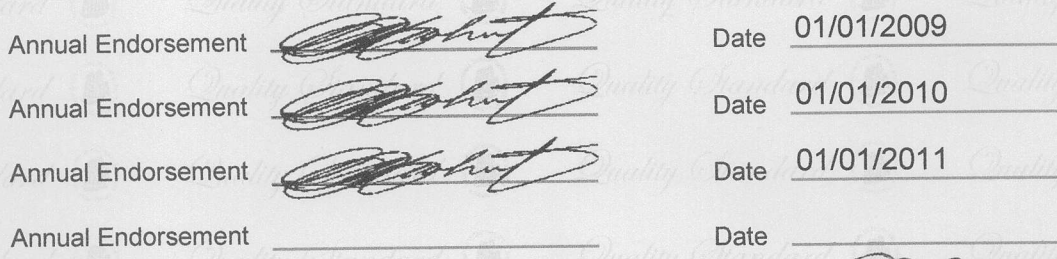 Annual Endorsement Date 01/01/2009
Annual Endorsement Date 01/01/2010
Annual Endorsement Date 01/01/2011
Annual Endorsement Date